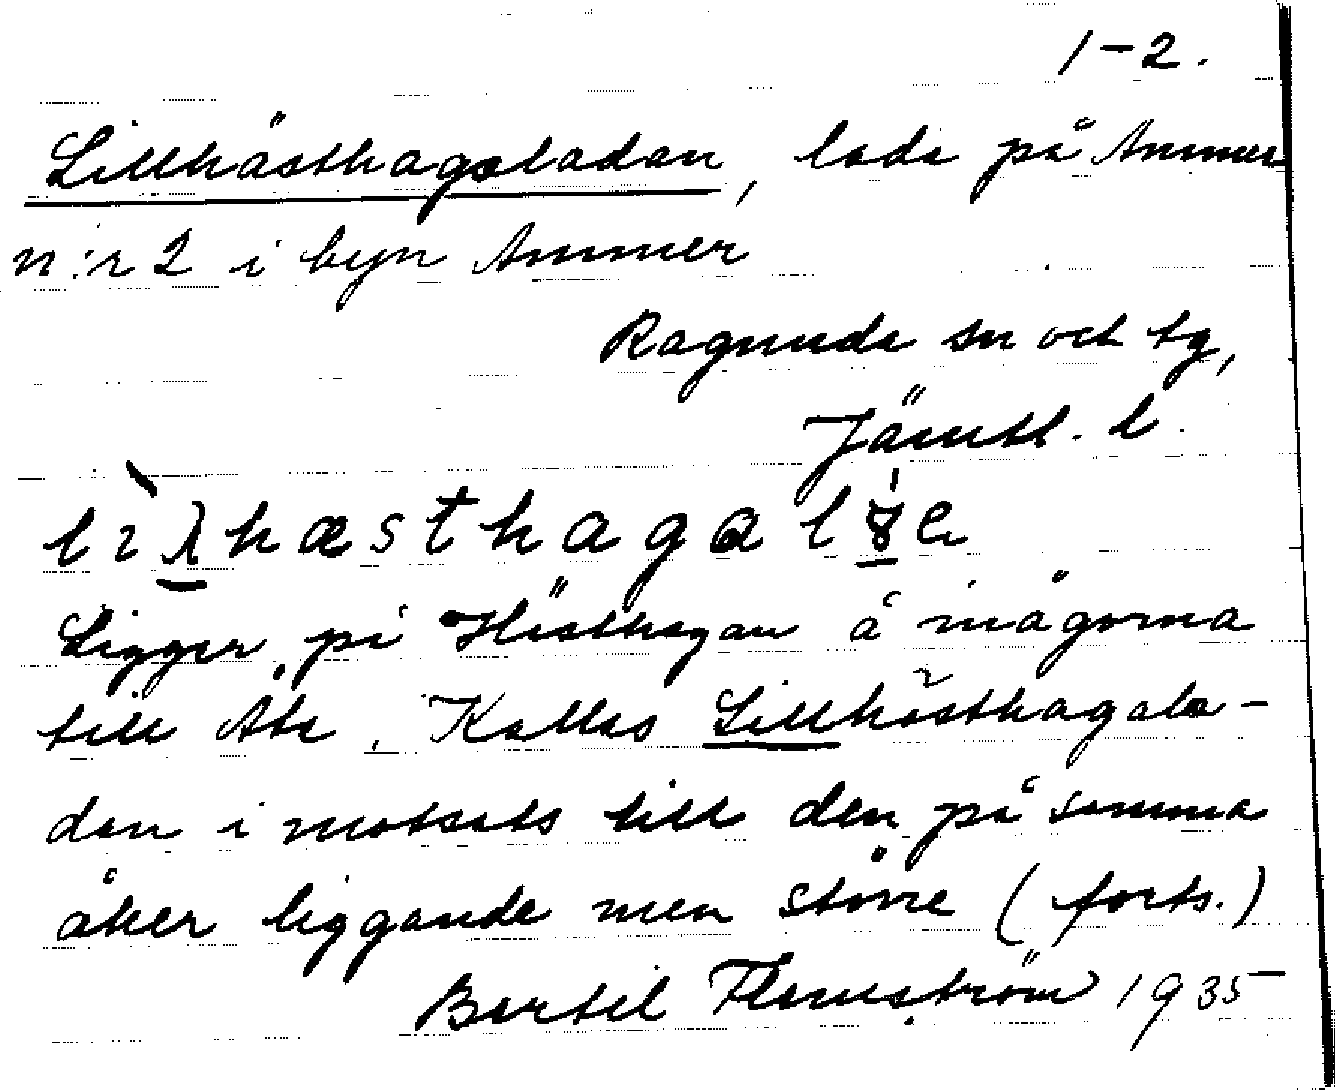 1-2.
Lillhästhagaladan, lada på Ammer
n:r 2 i byn Ammer
Ragunda sn och tg,
Jämtl. l.
Ligger på Hästhagan å inägorna
till Åta. Kallas Lillhästhagala-
dan i motsats till den på samma
åker liggande men större (forts.)
Bertil Flemström 1935